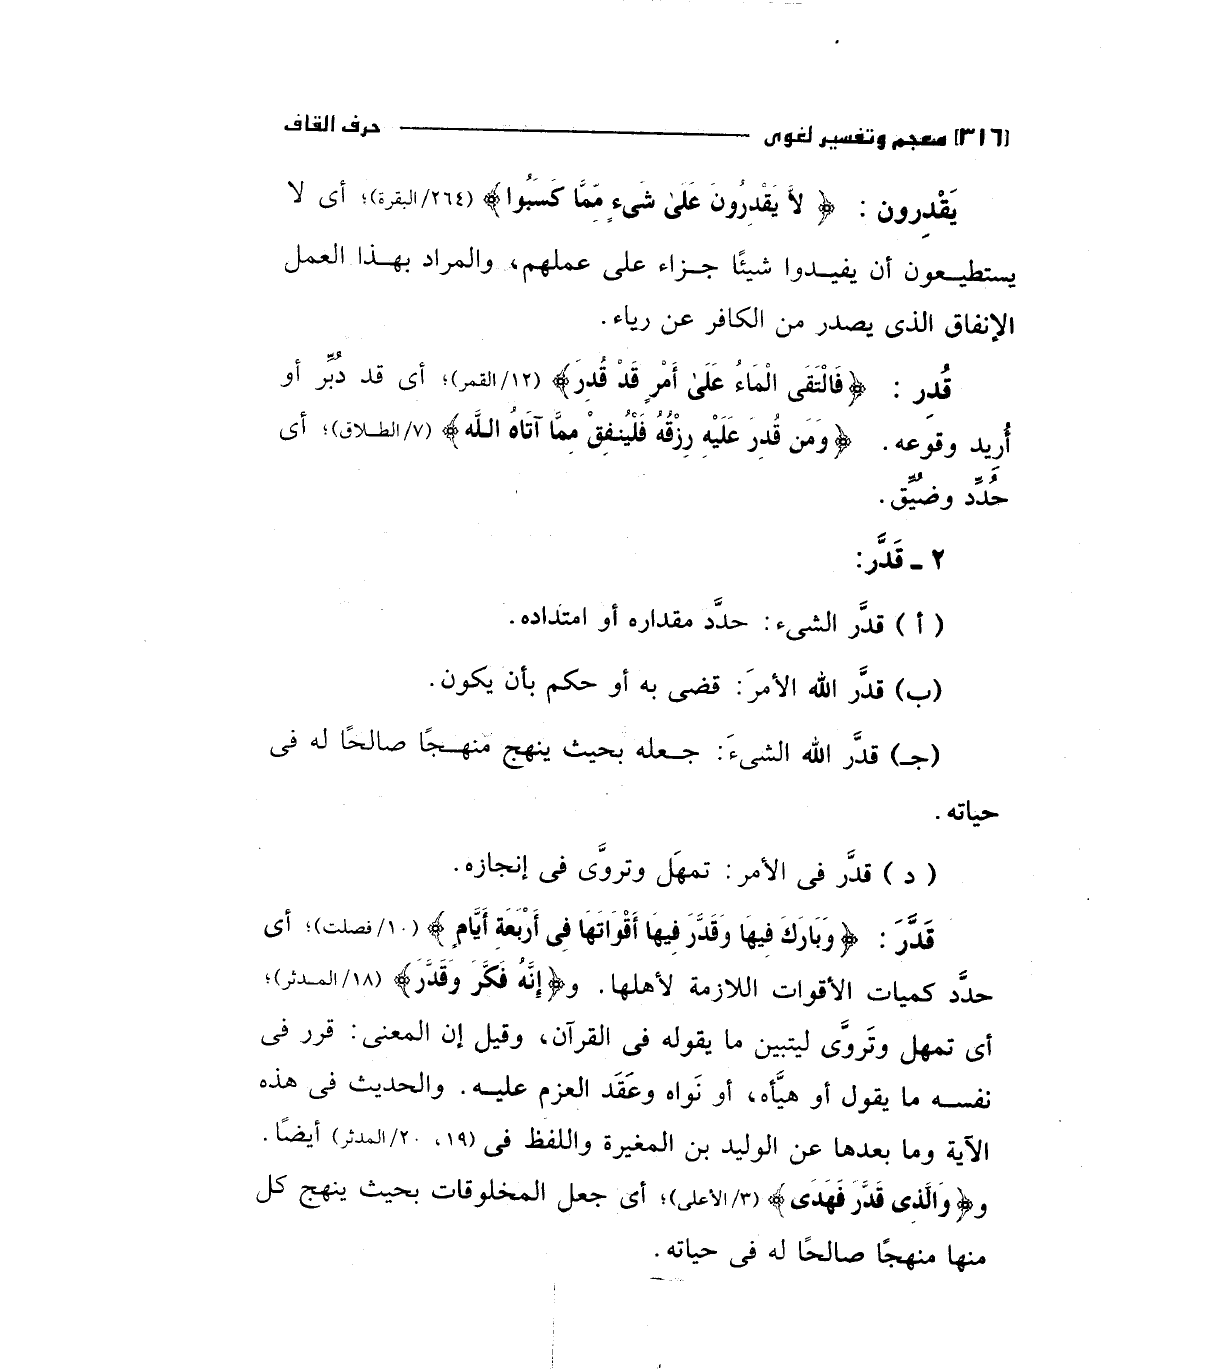 [٣١٦] معجم وتفسير لغوى حرف القاف
يَقْدِرون : ﴿ لاَّ يَقْدِرُونَ عَلَىٰ شَىءٍ مِّمَّا كَسَبُوا﴾ (٢٦٤/البقرة)؛ أى لا
يستطيعون أن يفيدوا شيئًا جزاء على عملهم، والمراد بهذا العمل
الإنفاق الذى يصدر من الكافر عن رياء.
قُدِر : ﴿فَالْتَقَى الْمَاءُ عَلَىٰ أَمْرٍ قَدْ قُدِرَ﴾ (١٢/القمر)؛ أى قد دُبِّر أو
أُرِيد وقوعه. ﴿وَمَن قُدِرَ عَلَيْهِ رِزْقُهُ فَلْيُنفِقْ مِمَّا آتَاهُ اللَّه﴾ (٧/الطلاق)؛ أى
حُدِّد وضيِّق.
٢ ـ قَدَّر:
( أ ) قدَّر الشىء: حدَّد مقداره أو امتداده.
(ب) قدَّر الله الأمرَ: قضى به أو حكم بأن يكون.
(جـ) قدَّر الله الشىءَ: جعله بحيث ينهج منهجًا صالحًا له فى
حياته.
( د ) قدَّر فى الأمر: تمهَل وتروَّى فى إنجازه.
قَدَّرَ : ﴿وَبَارَكَ فِيهَا وَقَدَّرَ فِيهَا أَقْوَاتَهَا فِى أَرْبَعَةِ أَيَّامٍ ﴾ (١٠/فصلت)؛ أى
حدَّد كميات الأقوات اللازمة لأهلها. و﴿إِنَّهُ فَكَّرَ وَقَدَّرَ﴾ (١٨/المدثر)؛
أى تمهل وتَروَّى ليتبين ما يقوله فى القرآن، وقيل إن المعنى: قرر فى
نفسه ما يقول أو هيَّأه، أو نَواه وعَقَد العزم عليه. والحديث فى هذه
الآية وما بعدها عن الوليد بن المغيرة واللفظ فى (١٩، ٢٠/المدثر) أيضًا.
و﴿وَالَّذِى قَدَّرَ فَهَدَى﴾ (٣/الأعلى)؛ أى جعل المخلوقات بحيث ينهج كل
منها منهجًا صالحًا له فى حياته.